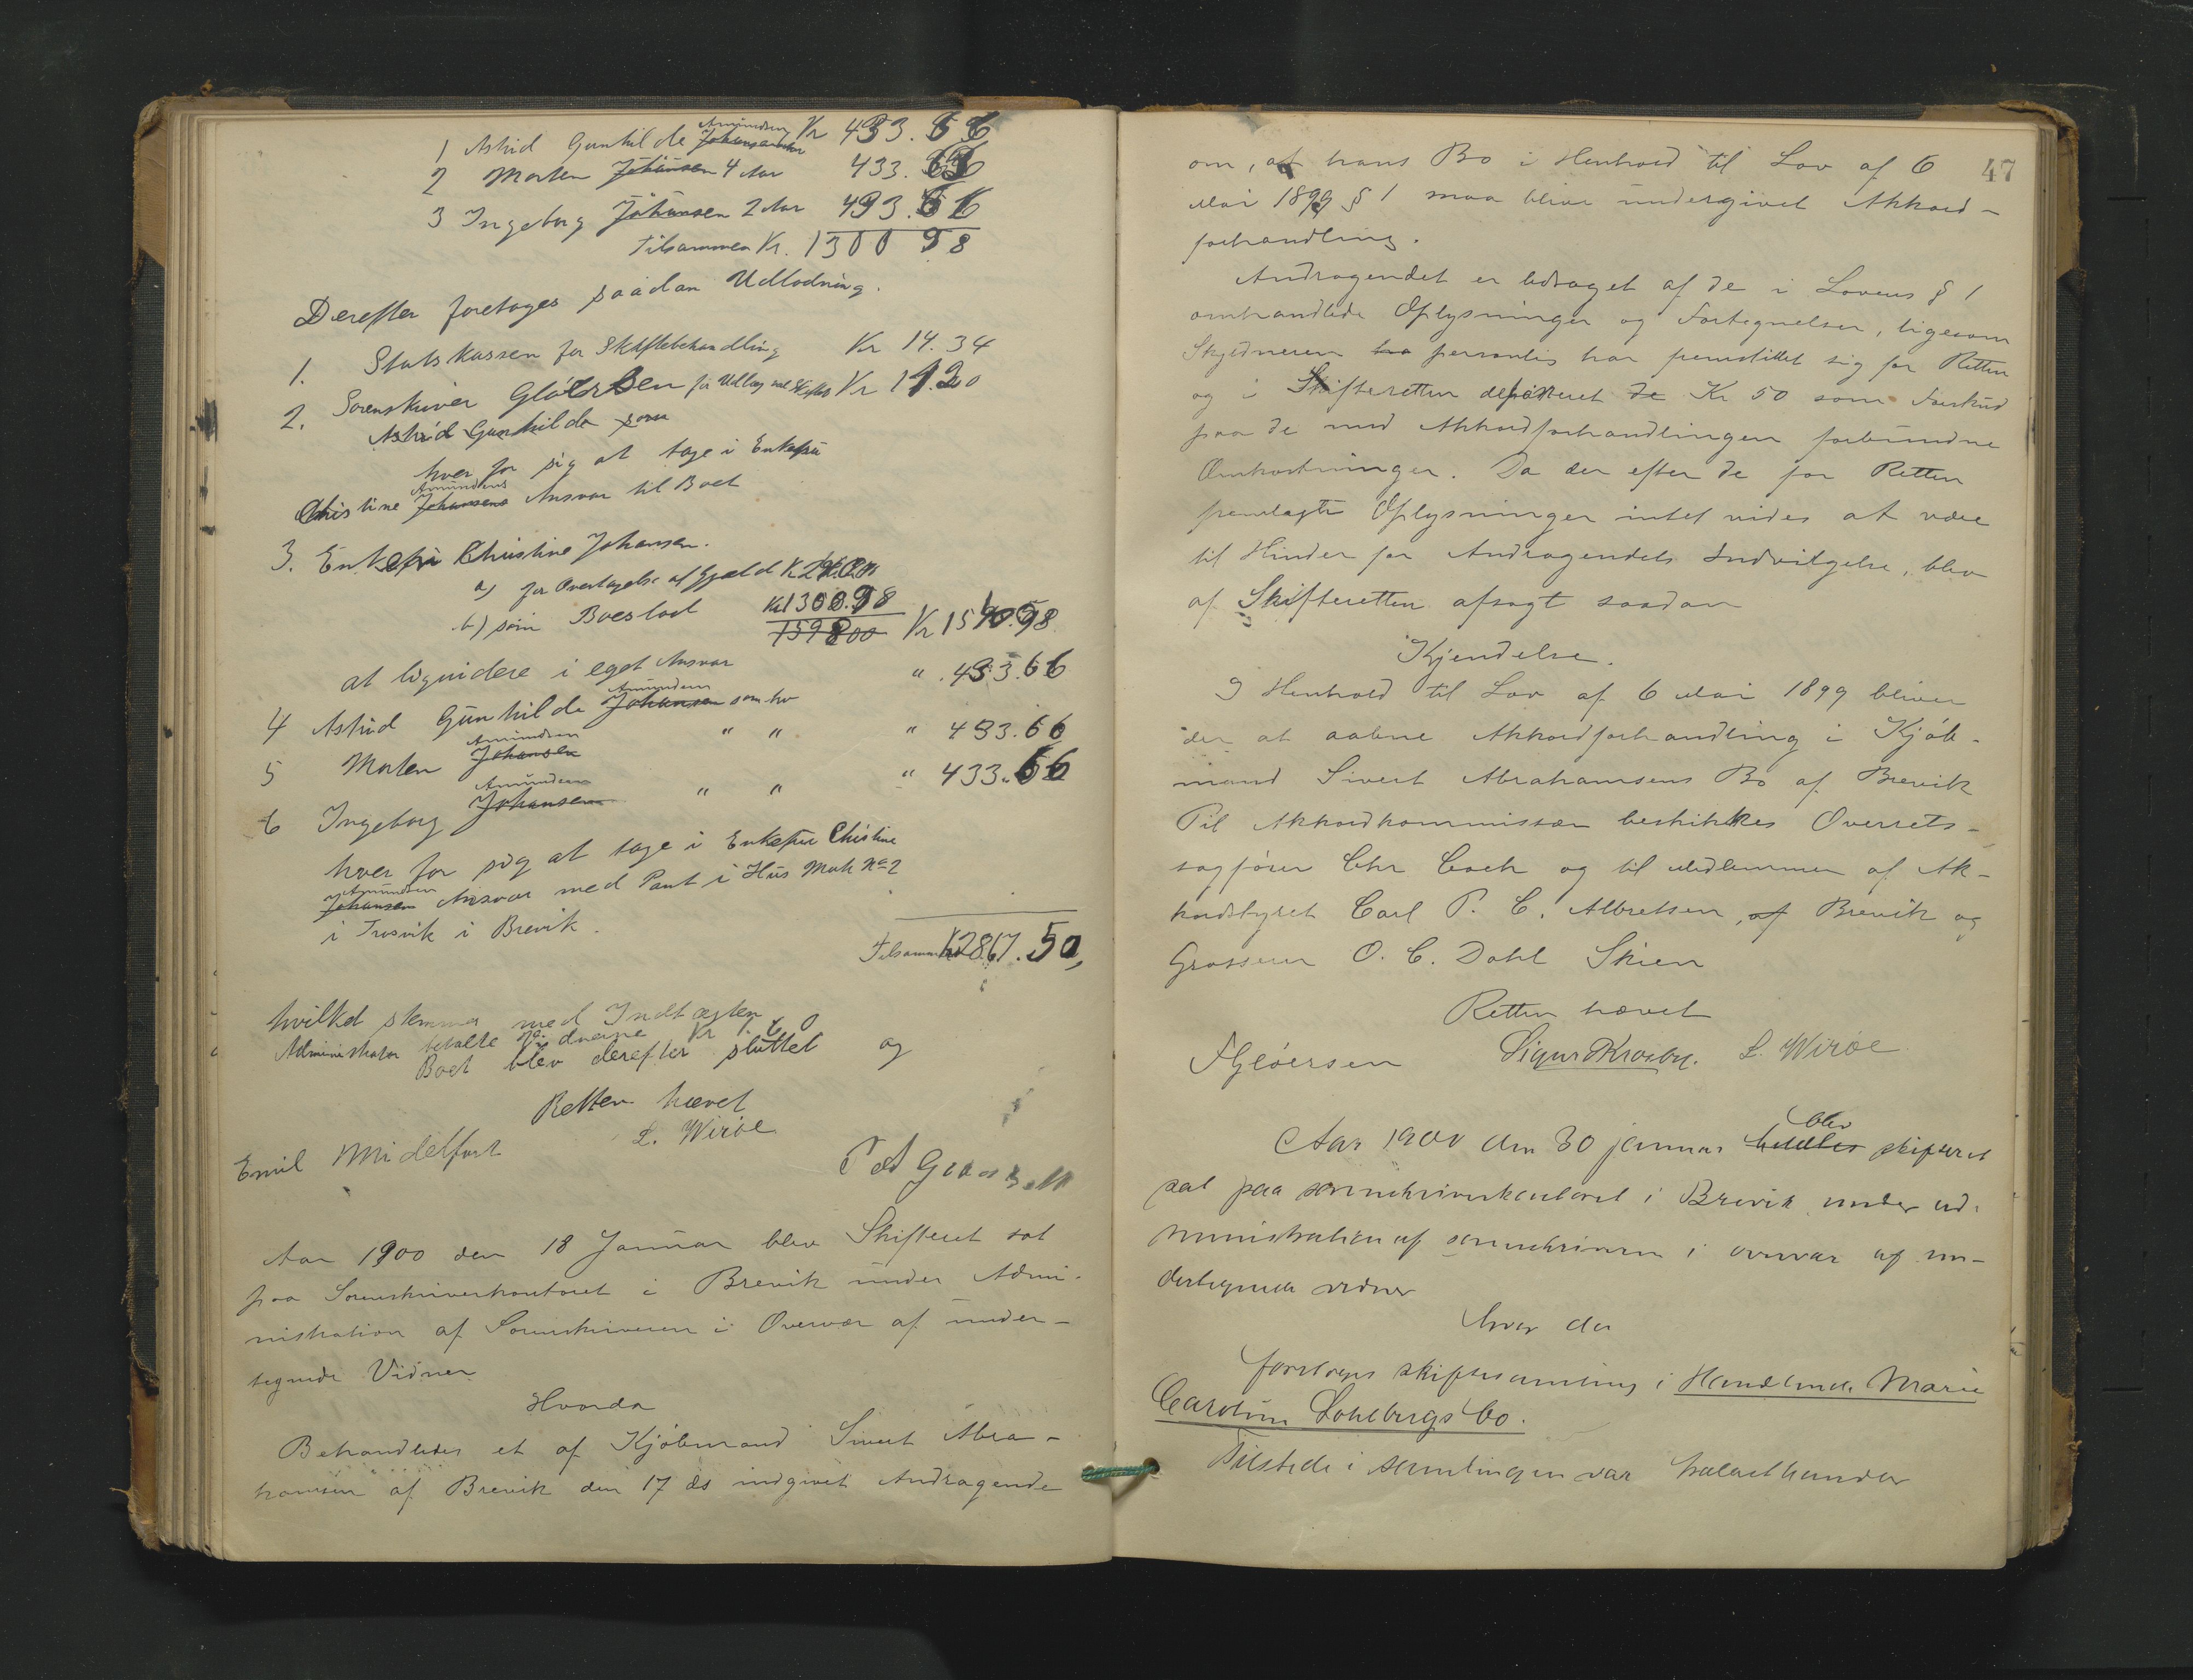 Amundsen
1 Astrid Gunhilde Johansen Kr 433.66
2 Morten Johansen 4 Aar 433.66
3 Ingeborg Johansen 2 Aar 433.66
Tilsammen Kr. 1300 98
Derefter foretages saadan Udlodning.
1. Statskassen for Skiftebehandling Kr 14.34
2. Sorenskriver Gløersen for Udlæg ved Skiftet Kr 11.20
Astrid Gunhilde som
hver for sig at tage i Enkefru
Amundsens
Christine Johansens Ansvar til Boet
3. Enkefru Christine Johansen.
a) for Overtagelse af Gjæld Kr
b) som Boeslod Kr 1300.98
159800 Kr 1540.98
at liqvidere i eget Ansvar
Amundsen
4 Astrid Gunhilde Johansen som " 433.66
Amundsen
5 Morten Johansen " " " 433.66
Amundsen
6 Ingeborg Johansen " " " 433.66
hver for sig at tage i Enkefru Christine
Amundsen
Johansen Ansvar med Pant i Hus Matr No 2
i Trosvik i Brevik.
Tilsammen Kr 2867.50,
hvilket stemmer med Indtægten
Administrator betalte Vidnerne Kr 1.60
Boet blev derefter sluttet og
Retten hævet
Emil Midelfart L. Wirøe
Aar 1900 den 18 Januar blev Skifteret sat
paa Sorenskriverkontoret i Brevik under Admi-
nistration af Sorenskriveren i Overvær af under-
tegnede Vidner
Hvorda
Behandledes et af Kjøbmand Sivert Abra-
hamsen af Brevik den 17 ds indgivet Andragende
47
om, at hans Bo i Henhold til Lov af 6
Mai 1899 § 1 maa blive undergivet Akkord-
forhandling.
Andragendet er ledsaget af de i Lovens § 1
omhandlede Oplysninger og Fortegnelser, ligesom
Skyldneren personlig har fremstillet sig for Retten
og i Skifteretten deponeret de Kr 50 som Forskud
paa de med Akkordforhandlingen forbundne
Omkostninger. Da der efter de for Retten
fremlagte Oplysninger intet vides at være
til Hinder for Andragendets Indvilgelse, blev
af Skifteretten afsagt saadan
Kjendelse.
I Henhold til Lov af 6 Mai 1899 bliver
der at aabne Akkordforhandling i Kjøb-
mand Sivert Abrahamsens Bo af Brevik
Til Akkordkommissær beskikkes Overrets-
sagfører Chr Coch og til Medlemmer af Ak-
kordstyret Carl P. C. Albretsen, af Brevik og
Grosserer O. C. Dahl Skien
Retten hævet
FGløersen Sigurd Krosby. L. Wirøe
blev
Aar 1900 den 30 januar holdtes skifteret
sat paa sorenskriverkontoret i Brevik under ad-
ministration af sorenskriveren i overvær af un-
dertegnede vidner
hvor da
foretoges skiftesamling i Handlende Marie
Caroline Dahlbergs bo.
Tilstede i samlingen var